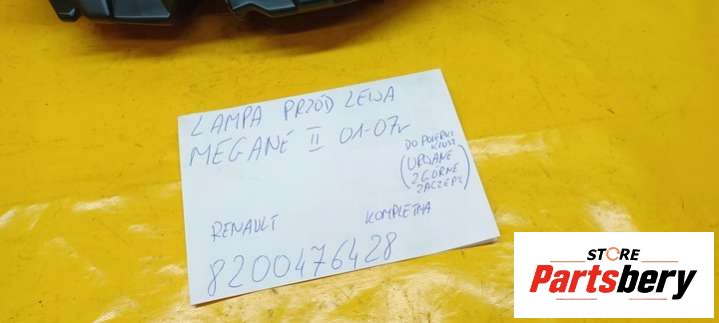 LAMPA PRZÓD LEWA
MEGANE II 01-07r
DO POLERKI
KLOSZ
(URWANE
2 GÓRNE
ZACZEPY)
RENAULT KOMPLETNA
8200476428
STORE
Partsbery